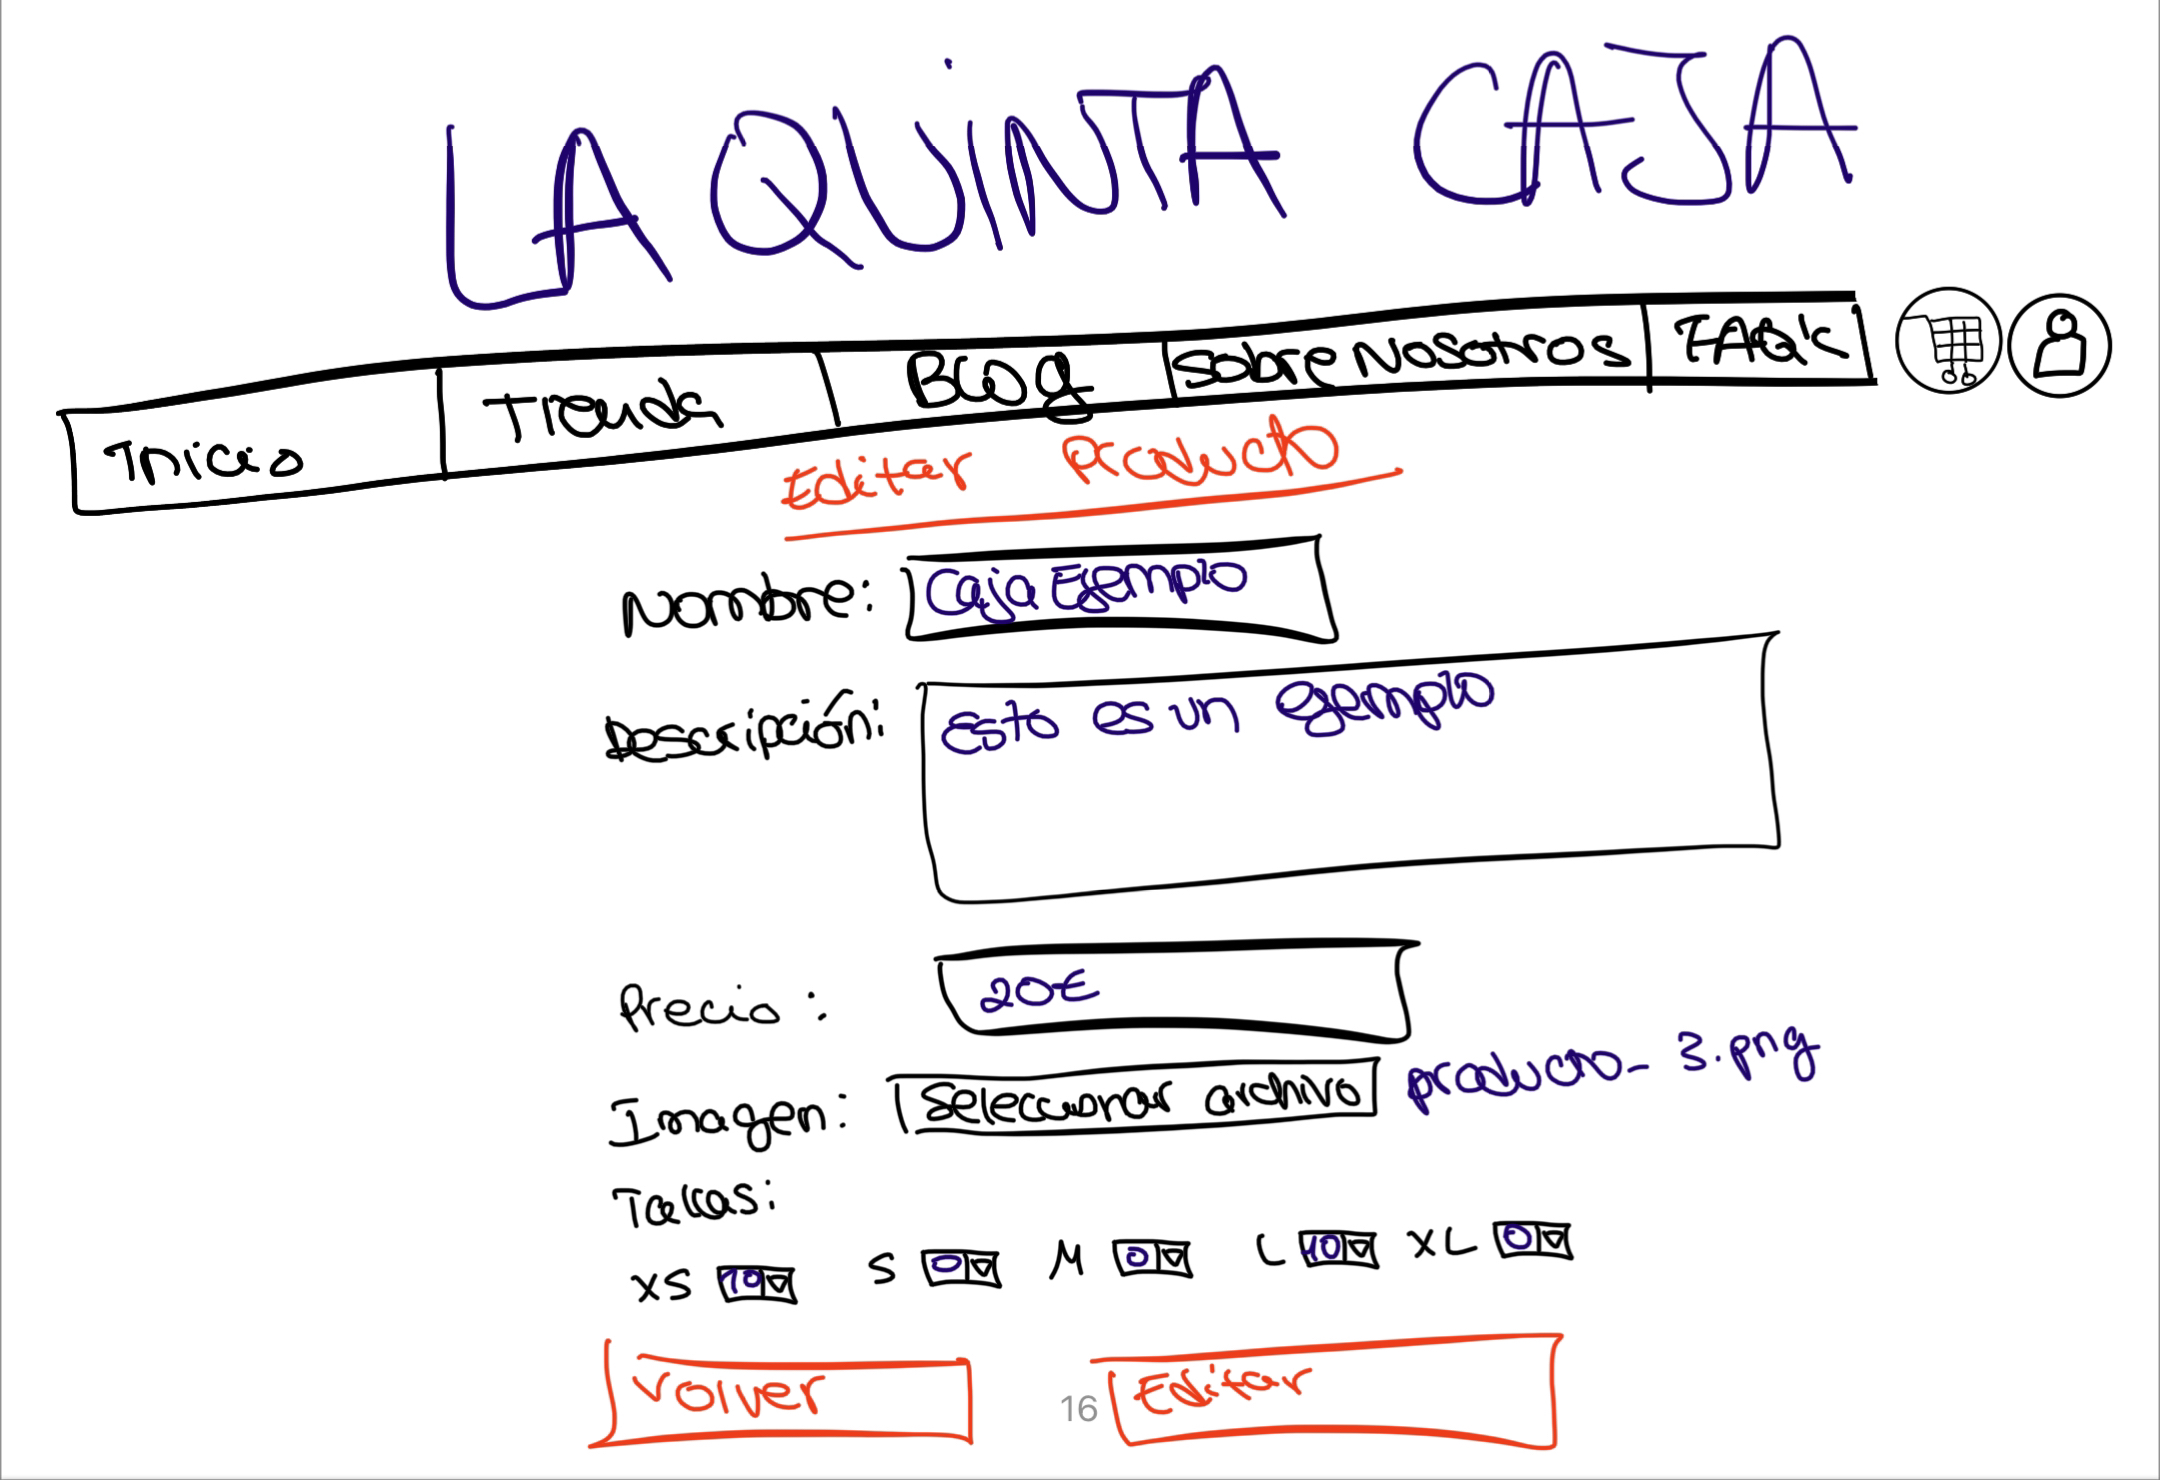 LA QUINTA CAJA
Inicio Tienda Blog Sobre Nosotros FAQ's
Editar Producto
Nombre: Caja Ejemplo
Descripción: Esto es un ejemplo
Precio: 20€
Imagen: Seleccionar archivo producto_3.png
Tallas:
XS 10 S 0 M 0 L 10 XL 0
Volver 16 Editar